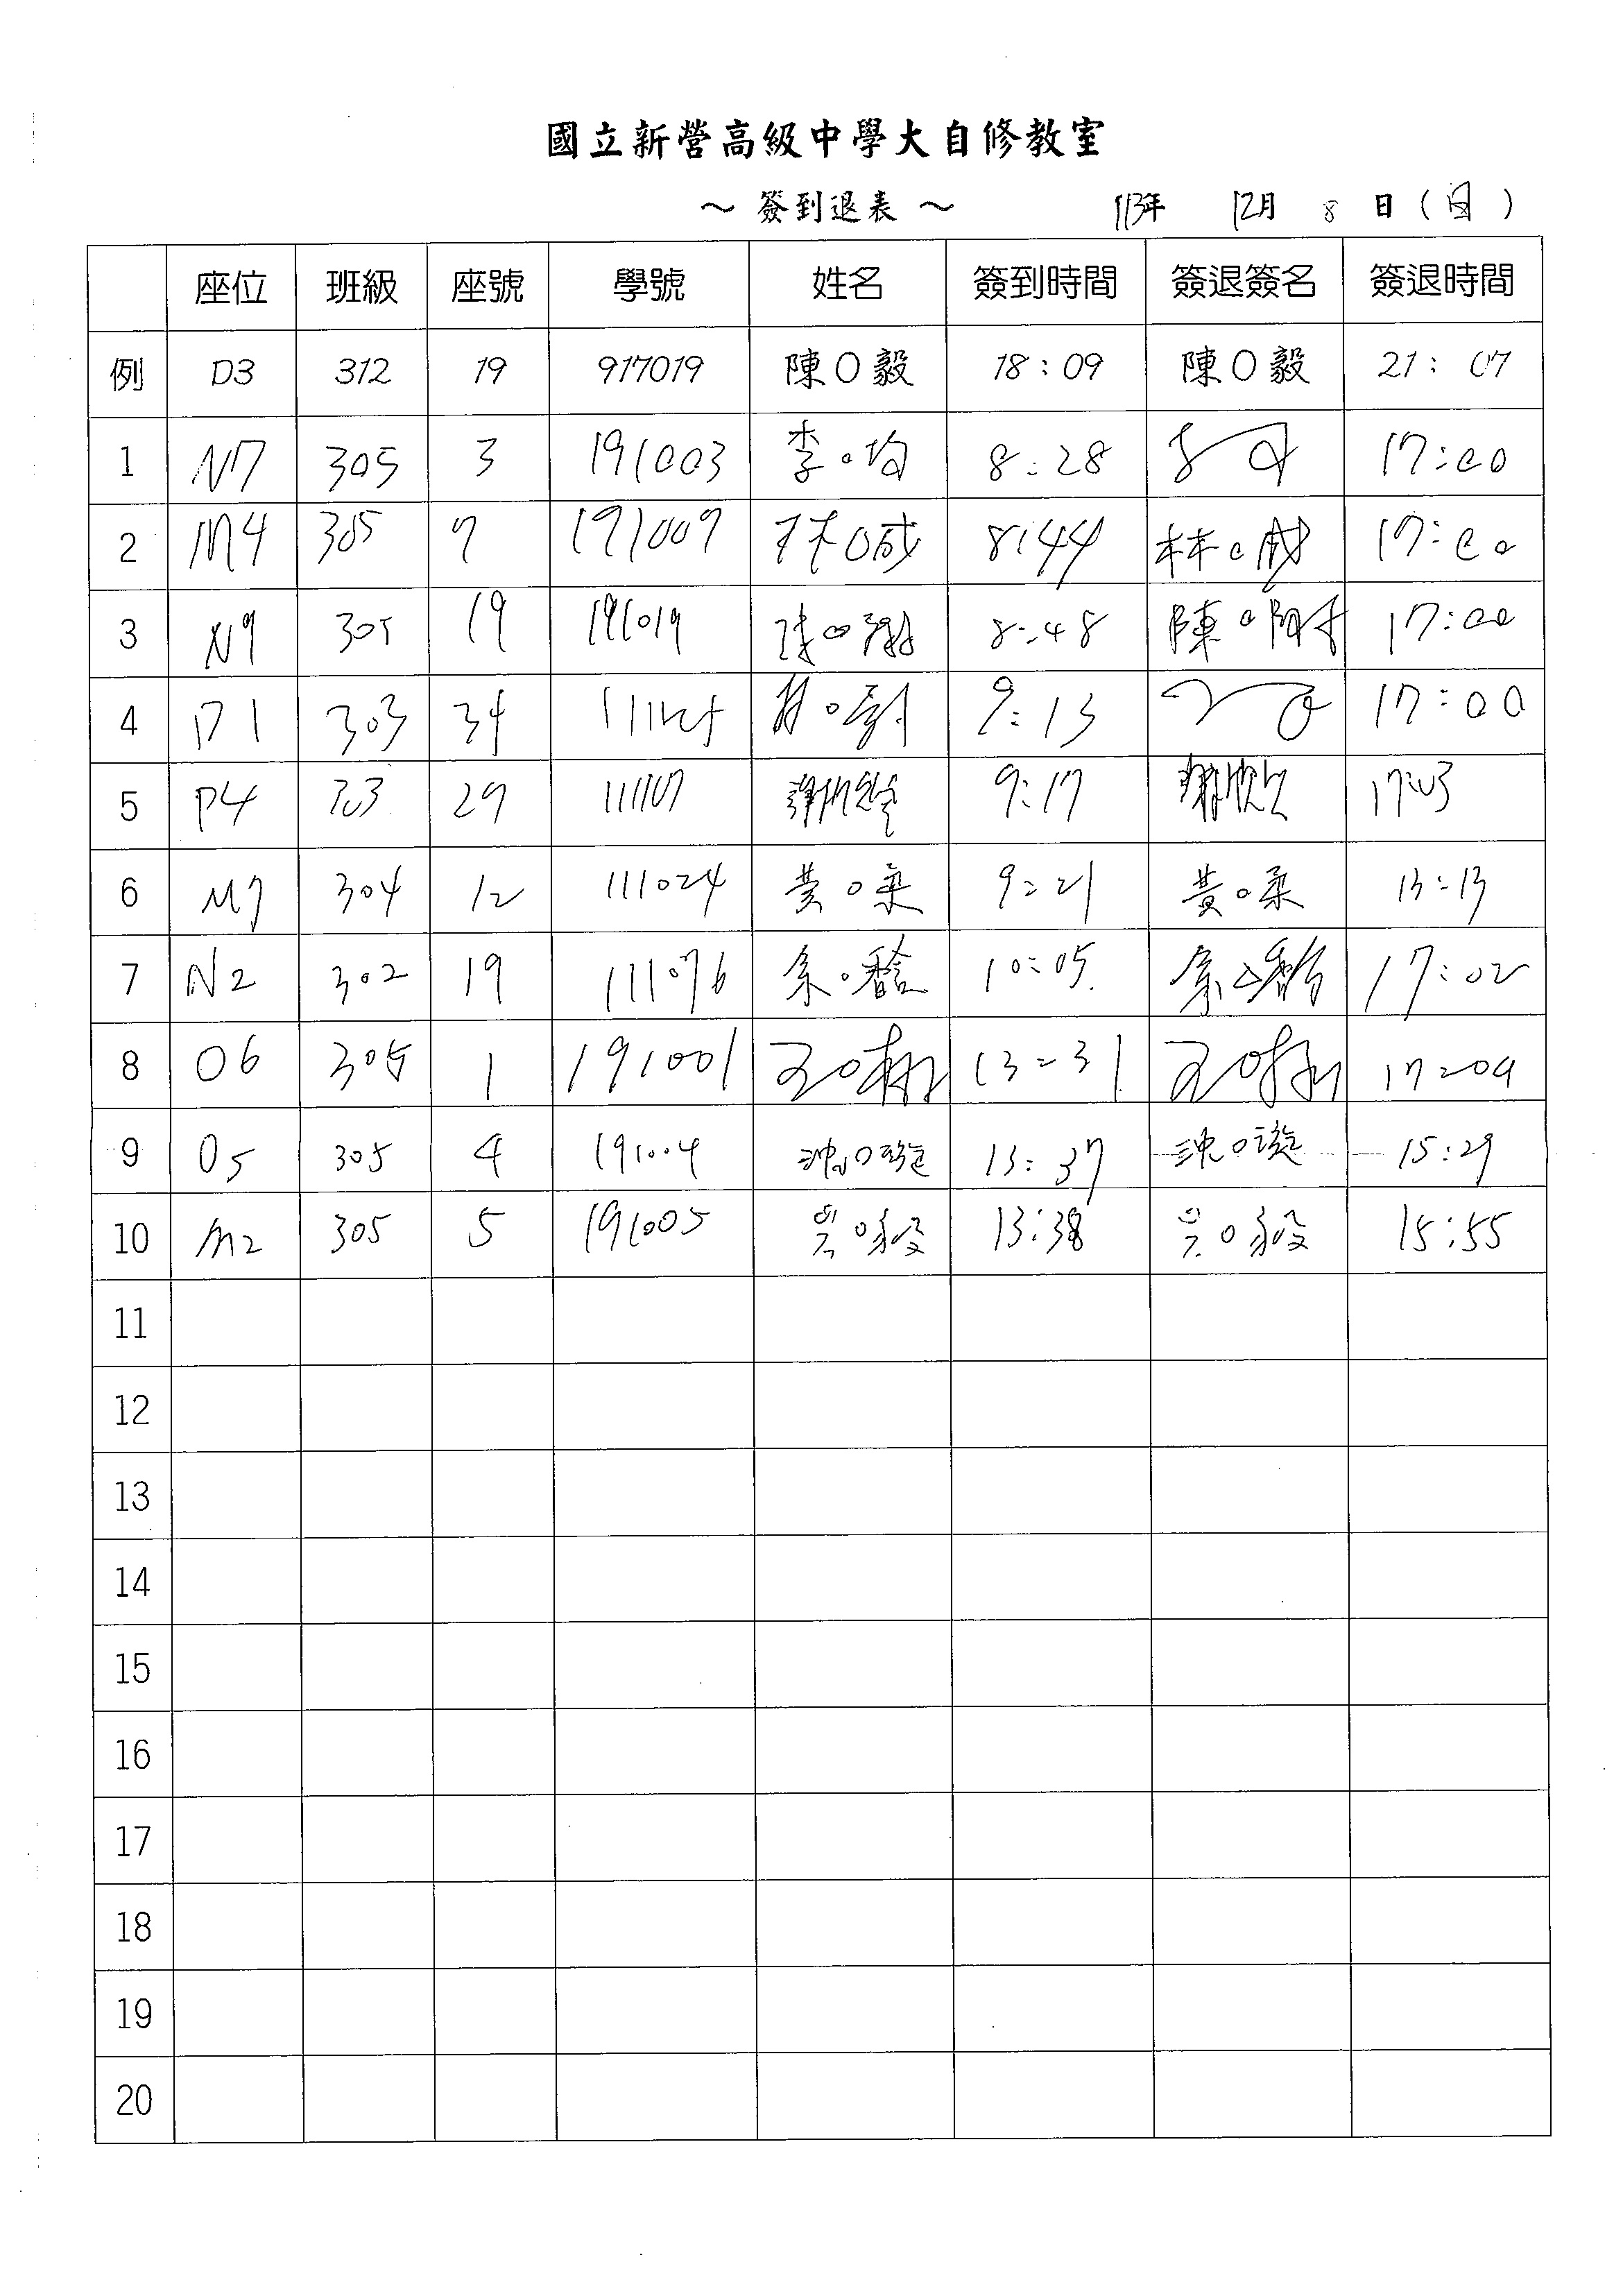 國立新營高級中學大自修教室
～ 簽到退表 ～ 113年 12月 8 日 (日)
座位 班級 座號 學號 姓名 簽到時間 簽退簽名 簽退時間
例 D3 312 19 917019 陳○毅 18:09 陳○毅 21:07
1 N7 305 3 191003 李○均 8:28 17:00
2 M4 305 7 191007 林○成 8:44 林○成 17:00
3 N9 305 19 191019 陳○ 8:48 陳○ 17:00
4 P1 303 34 林○ 9:13 17:00
5 P4 303 29 謝欣 9:17 謝欣 17:03
6 M7 304 12 111024 黃○柔 9:21 黃○柔 13:13
7 N2 302 19 111076 余○馨 10:05 余○馨 17:02
8 O6 305 1 191001 王○ 13:31 王○ 17:09
9 O5 305 4 191004 沈○璇 13:37 沈○璇 15:29
10 M2 305 5 191005 吳○毅 13:38 吳○毅 15:55
11
12
13
14
15
16
17
18
19
20